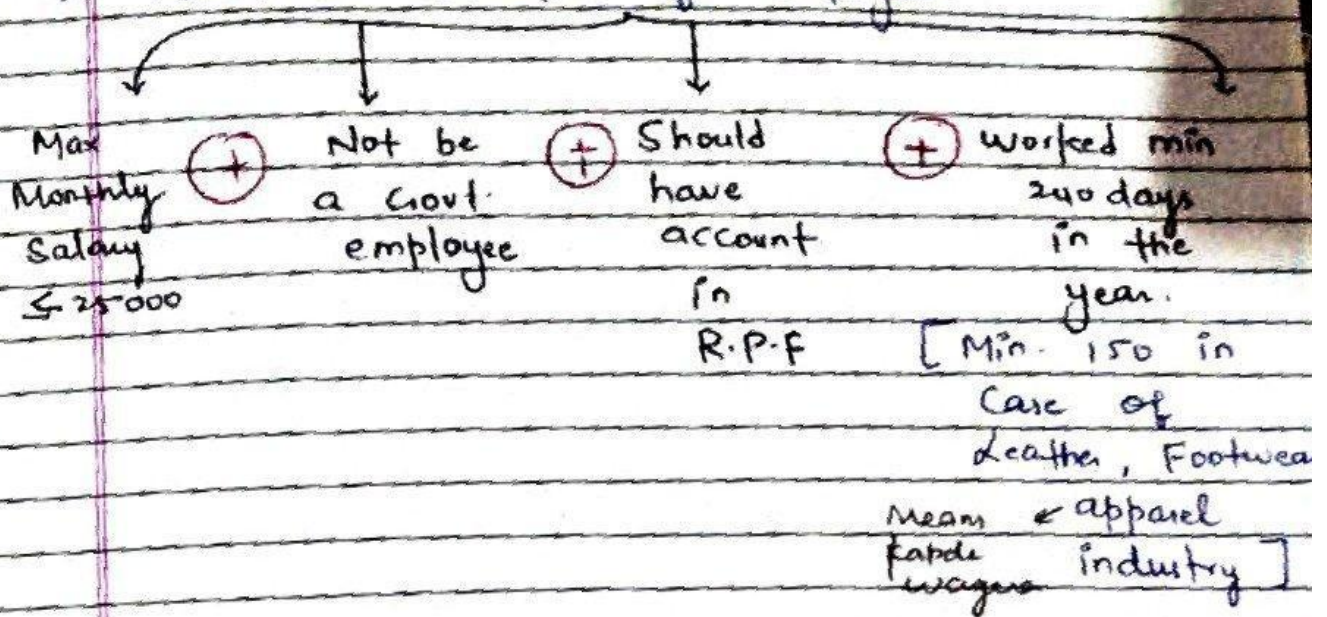 Max
Monthly
Salary
≤ 25000
+
Not be
a Govt.
employee
+
Should
have
account
in
R.P.F
+
worked min
240 days
in the
year.
[ Min. 150 in
Case of
Leather, Footwea
apparel
industry ]
Means
kapde
wagera